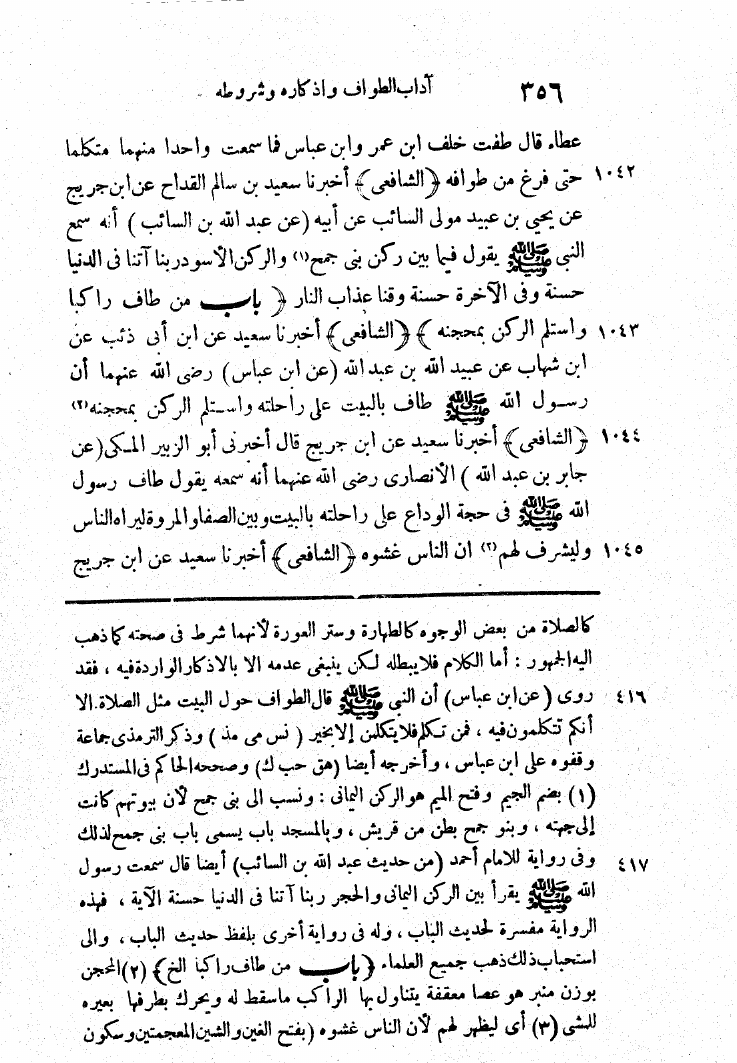 ٣٥٦ آداب الطواف واذكاره وشروطه
عطاء قال طفت خلف ابن عمر وابن عباس فما سمعت واحدا منهما متكلما
١٠٤٢ حتى فرغ من طوافه ﴿الشافعى﴾ أخبرنا سعيد بن سالم القداح عن ابن جريج
عن يحيى بن عبيد مولى السائب عن أبيه (عن عبد الله بن السائب) أنه سمع
النبى ﷺ يقول فيما بين ركن بنى جمح(١) والركن الأسود ربنا آتنا فى الدنيا
حسنة وفى الآخرة حسنة وقنا عذاب النار ﴿ باب من طاف راكبا
١٠٤٣ واستلم الركن بمحجنه ﴾ ﴿الشافعى﴾ أخبرنا سعيد عن ابن أبى ذئب عن
ابن شهاب عن عبيد الله بن عبد الله (عن ابن عباس) رضى الله عنهما أن
رسول الله ﷺ طاف بالبيت على راحلته واستلم الركن بمحجنه(٢)
١٠٤٤ ﴿الشافعى﴾ أخبرنا سعيد عن ابن جريج قال أخبرنى أبو الزبير المكى (عن
جابر بن عبد الله) الأنصارى رضى الله عنهما أنه سمعه يقول طاف رسول
الله ﷺ فى حجة الوداع على راحلته بالبيت وبين الصفا والمروة ليراه الناس
١٠٤٥ وليشرف لهم(٣) ان الناس غشوه ﴿الشافعى﴾ أخبرنا سعيد عن ابن جريج
كالصلاة من بعض الوجوه كالطهارة وستر العورة لأنهما شرط فى صحته كما ذهب
اليه الجمهور : أما الكلام فلا يبطله لكن ينبغى عدمه الا بالاذكار الواردة فيه ، فقد
٤١٦ روى (عن ابن عباس) أن النبى ﷺ قال الطواف حول البيت مثل الصلاة الا
أنكم تتكلمون فيه ، فمن تكلم فلا يتكلمن إلا بخير (نس مى مذ) وذكر الترمذى جماعة
وقفوه على ابن عباس ، وأخرجه أيضا (هق حب ك) وصححه الحاكم فى المستدرك
(١) بضم الجيم وفتح الميم هو الركن اليمانى : ونسب الى بنى جمح لأن بيوتهم كانت
إلى جهته ، وبنو جمح بطن من قريش ، وبالمسجد باب يسمى باب بنى جمح لذلك
٤١٧ وفى رواية للامام أحمد (من حديث عبد الله بن السائب) أيضا قال سمعت رسول
الله ﷺ يقرأ بين الركن اليمانى والحجر ربنا آتنا فى الدنيا حسنة الآية ، فهذه
الرواية مفسرة لحديث الباب ، وله فى رواية أخرى بلفظ حديث الباب ، والى
استحباب ذلك ذهب جميع العلماء ﴿باب من طاف راكبا الخ﴾ (٢) المحجن
بوزن منبر هو عصا معقفة يتناول بها الراكب ما سقط له ويحرك بطرفها بعيره
للمشى (٣) أى ليظهر لهم لأن الناس غشوه (بفتح الغين والشين المعجمتين وسكون